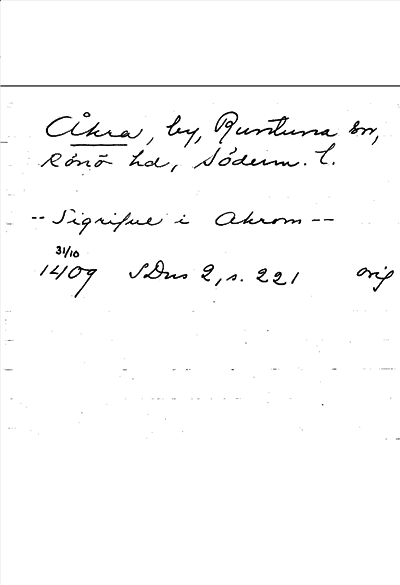 Åkra, by, Runtuna sn,
Rönö hd, Söderm. l.
-- Sigrifue i Akrom --
31/10
1409 SDns 2, s. 221 orig